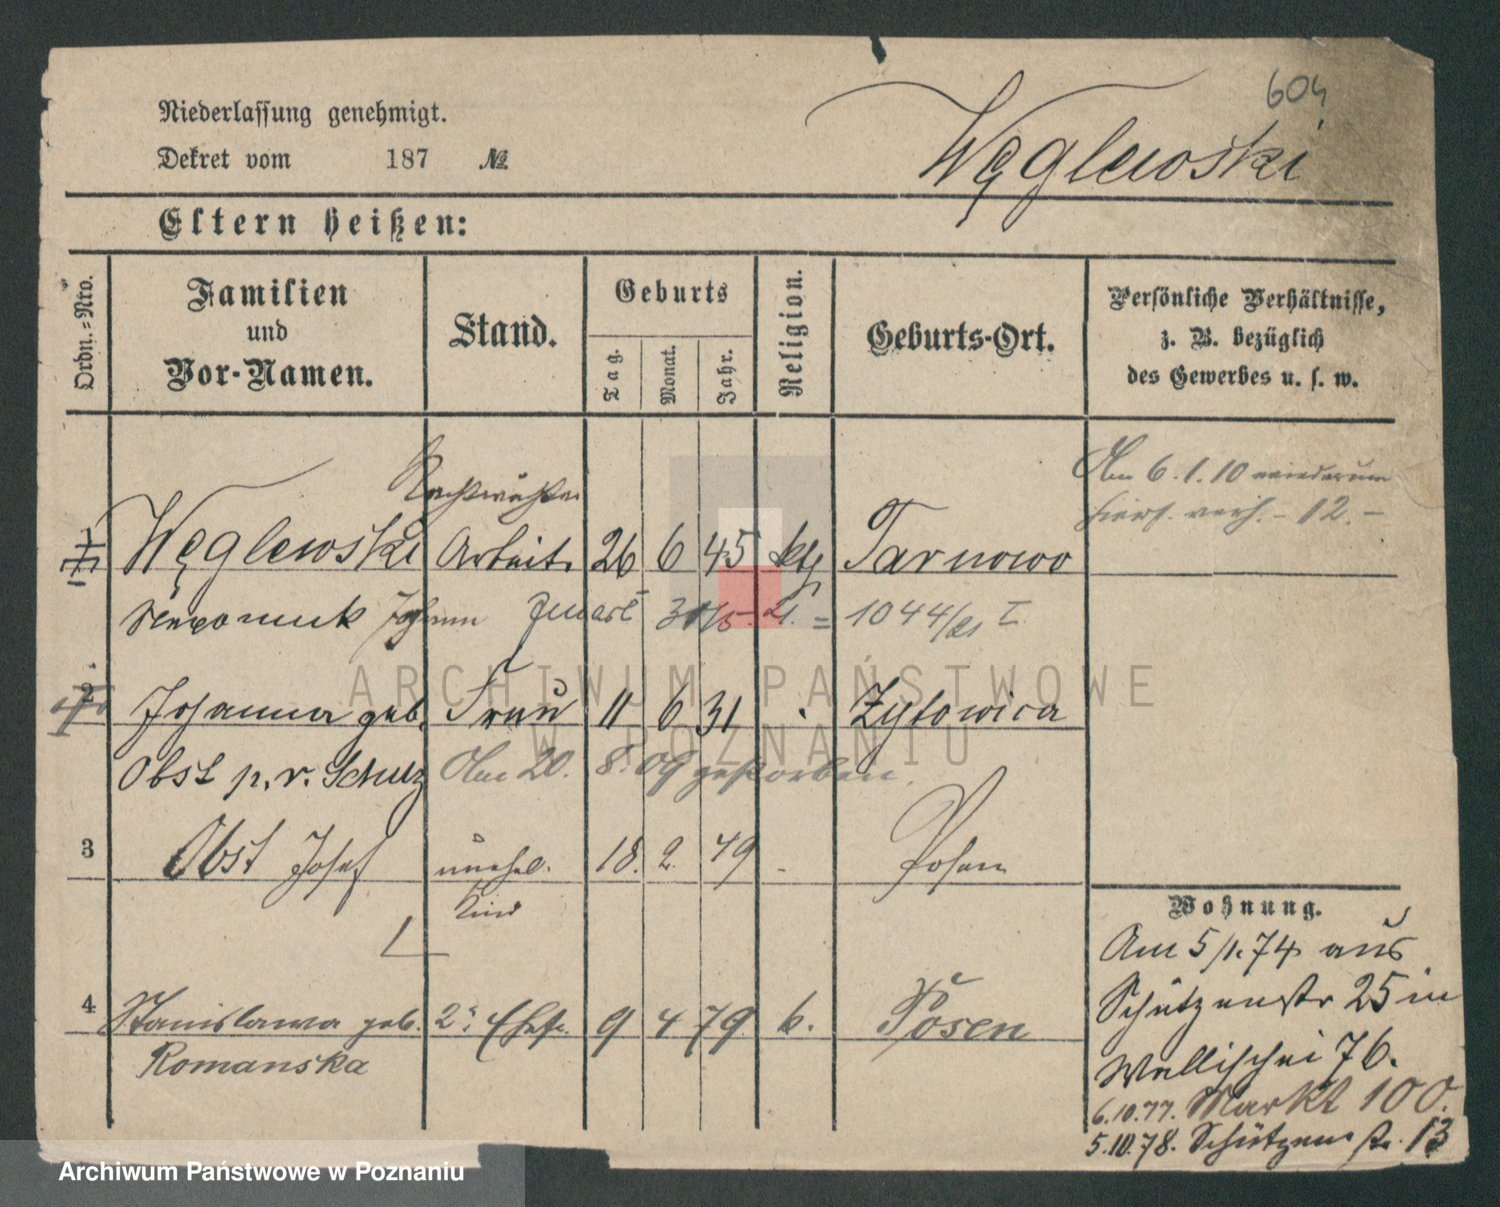 604
Węglewski
Niederlassung genehmigt.
Dekret vom 187 №
Eltern heißen:
Ordn.=Nro.
Familien
und
Vor-Namen.
Stand.
Geburts
Tag.
Monat.
Jahr.
Religion.
Geburts-Ort.
Persönliche Verhältnisse,
z. B. bezüglich
des Gewerbes u. s. w.
Nachtwächter
Am 6.1.10 wiederum
hiers. verh. - 12. -
1 Węglewski Arbeit. 26 6 45 kth Tarnowo
Nepomuk Johann 1044/21 I.
2 Johanna geb. Frau 11 6 31 . Zytowica
Obst p. v. Schulz Am 20. 8. 09 gestorben.
3 Obst Josef unehel. 18. 2. 79 - Posen
Kind
4 Stanislawa geb. 2. Ehefr. 9 4 79 k. Posen
Romanska
Wohnung.
Am 5/1.74 aus
Schützenstr 25 in
Wallischei 76.
6.10.77. Markt 100.
5.10.78. Schützenstr. 13
ARCHIWUM PAŃSTWOWE
W POZNANIU
Archiwum Państwowe w Poznaniu